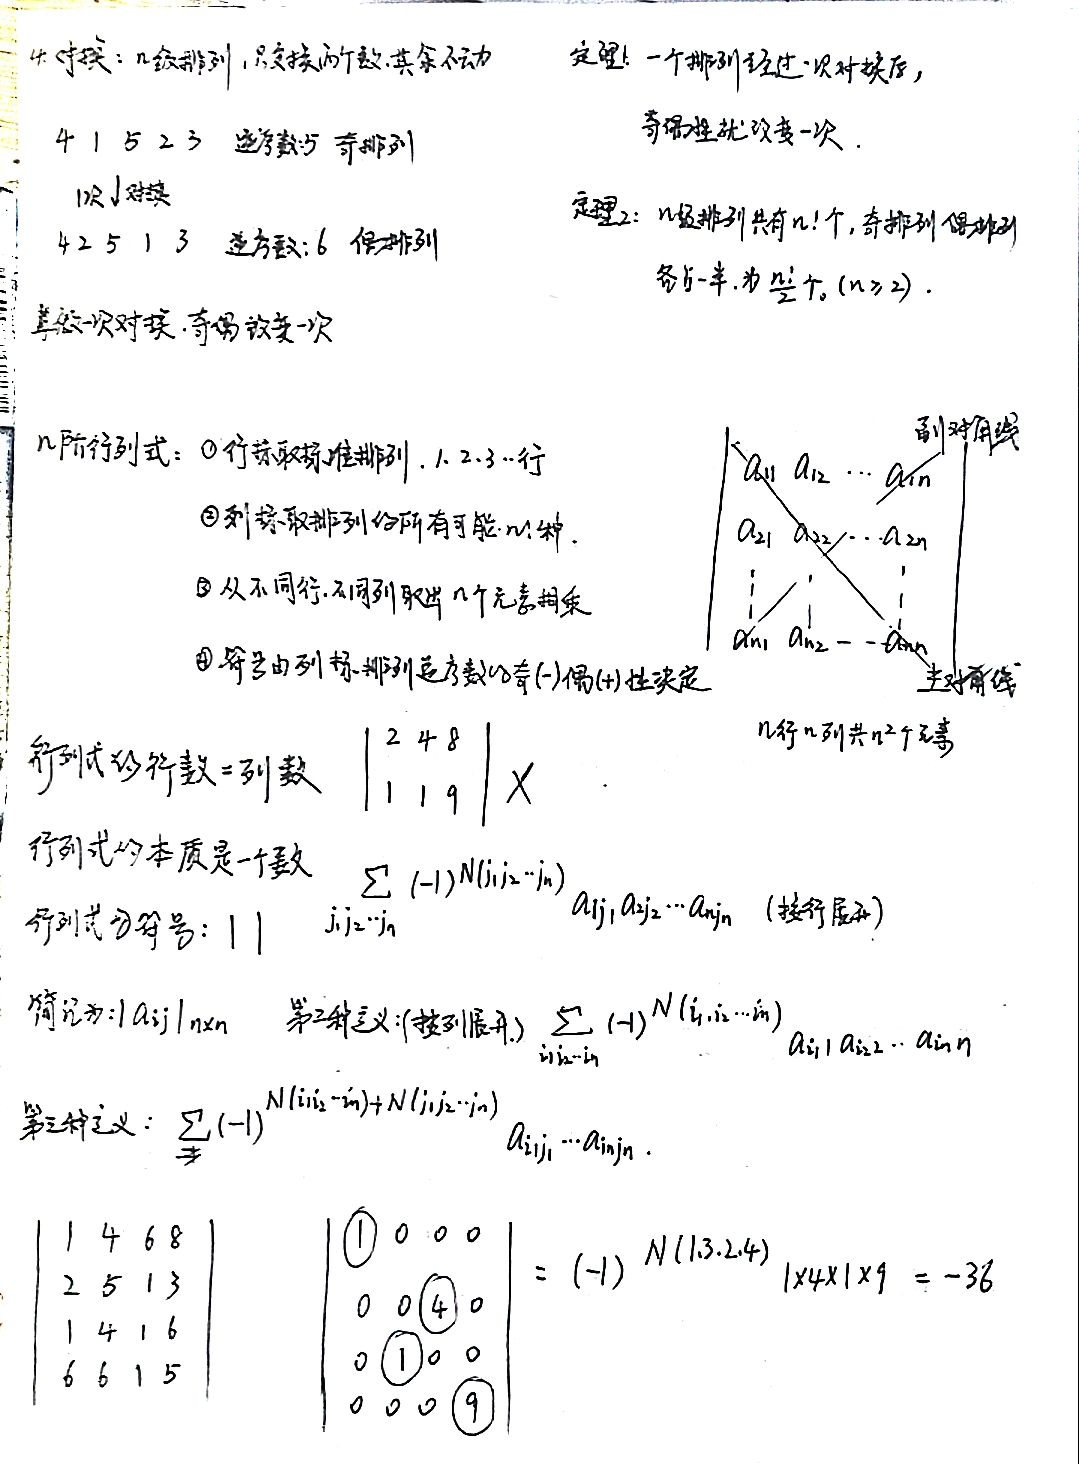 4. 对换：n级排列，只交换两个数，其余不动
4 1 5 2 3 逆序数:5 奇排列
1次↓对换
4 2 5 1 3 逆序数：6 偶排列
一次对换，奇偶改变一次
定理1：一个排列经过一次对换后，
奇偶性就改变一次．
定理2：n级排列共有n!个，奇排列偶排列
各占一半，为n!/2个。(n≥2)．
n阶行列式：①行标取标准排列，1. 2. 3 ··行
②列标取排列的所有可能，n!种．
③从不同行，不同列取出n个元素相乘
④符号由列标排列逆序数的奇(-)偶(+)性决定
副对角线
a11 a12 ··· a1n
a21 a22 ··· a2n
an1 an2 - - ann
主对角线
n行n列共n²个元素
行列式的行数=列数
| 2 4 8 |
| 1 1 9 | ×
行列式的本质是一个数
∑ j1j2··jn (-1)^N(j1j2··jn) a1j1 a2j2 ··· anjn (按行展开)
行列式的符号：| |
简记为：|aij|n×n 第二种定义：(按列展开) ∑ i1i2··in (-1)^N(i1,i2···in) ai11 ai22 ·· ainn
第三种定义：∑ (-1)^N(i1i2··in)+N(j1j2··jn) ai1j1 ··· ainjn .
| 1 4 6 8 |
| 2 5 1 3 |
| 1 4 1 6 |
| 6 6 1 5 |
| 1 0 0 0 |
| 0 0 4 0 |
| 0 1 0 0 |
| 0 0 0 9 |
= (-1)^N(1.3.2.4) 1×4×1×9 = -36